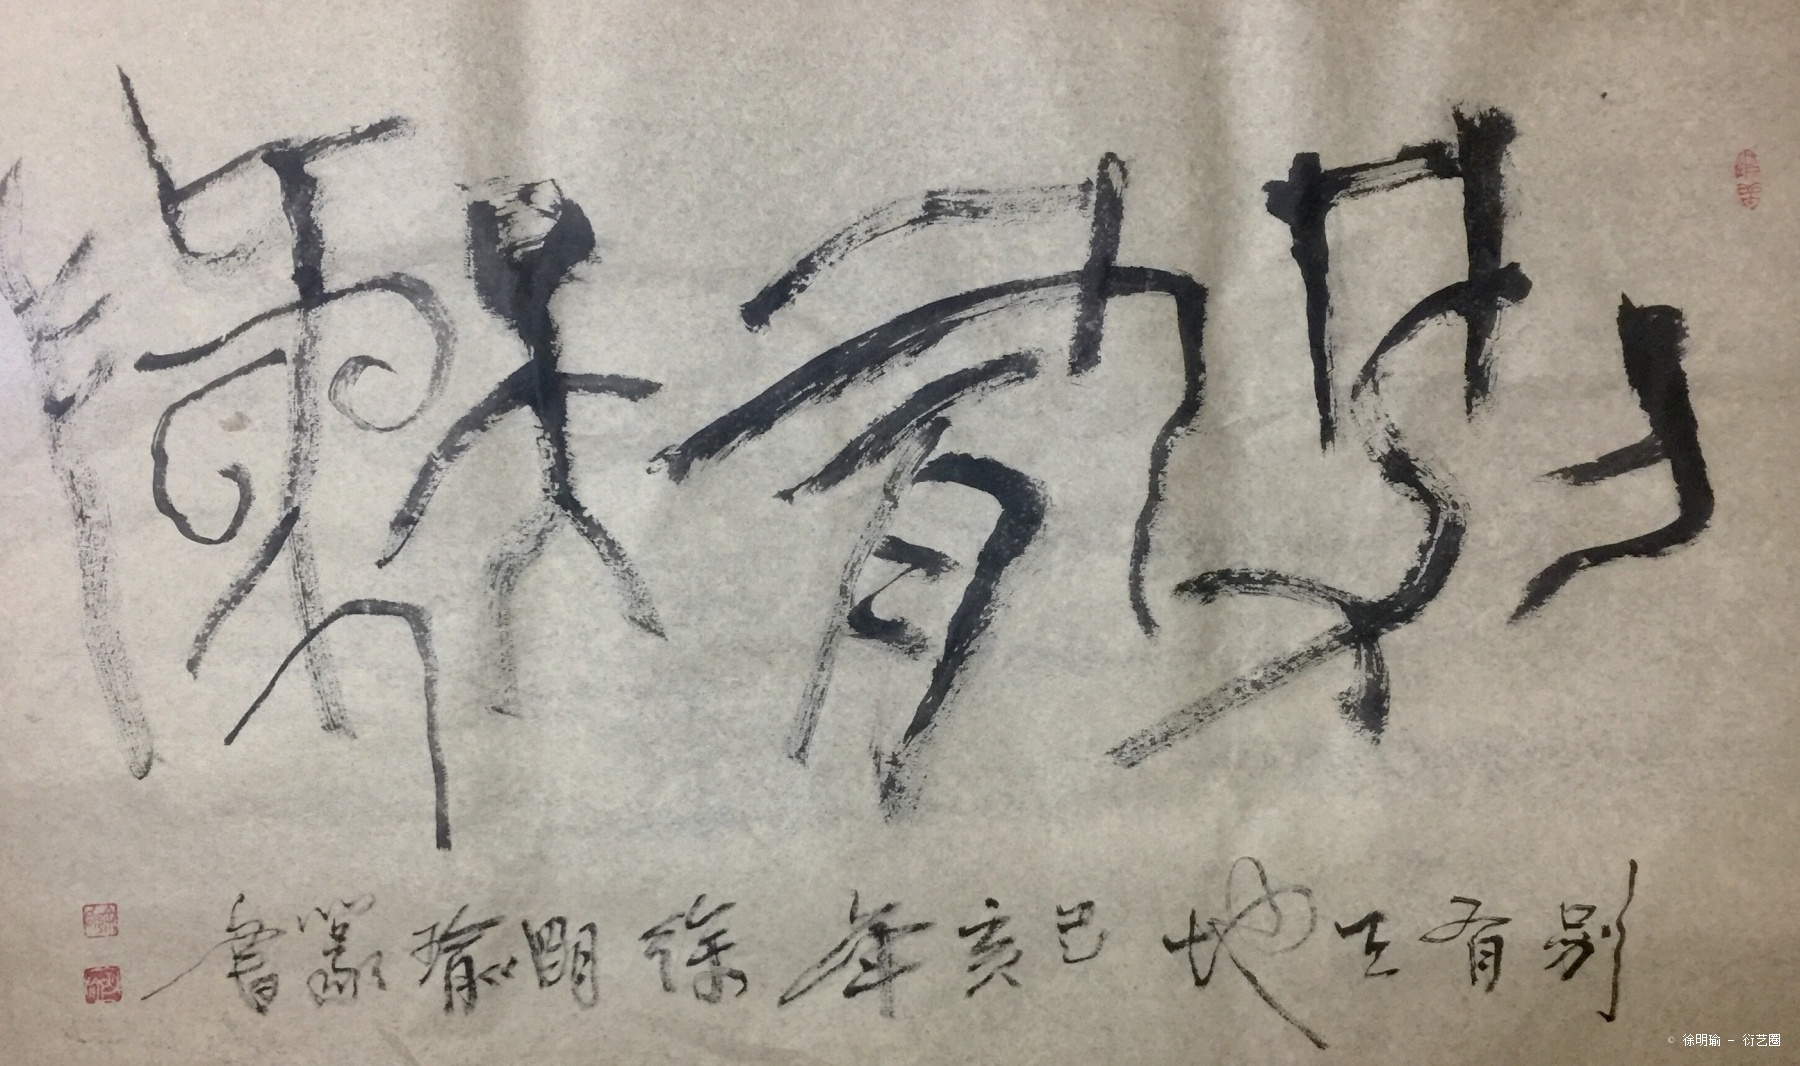 别有天地
别有天地己亥年徐明瑜篆書
© 徐明瑜 - 衍艺圈